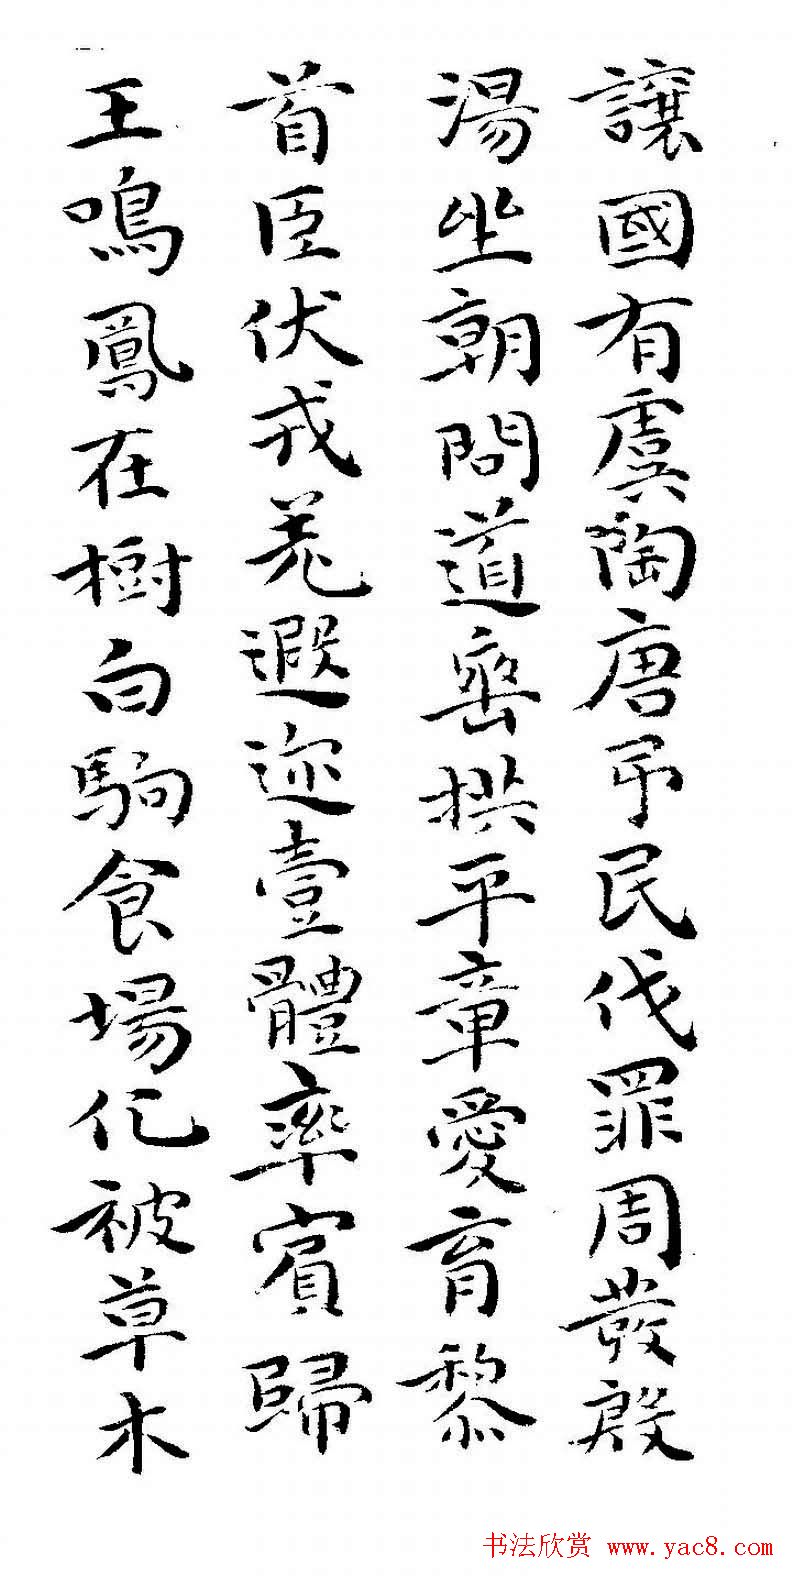 讓國有虞陶唐弔民伐罪周發殷
湯坐朝問道垂拱平章愛育黎
首臣伏戎羌遐迩壹體率賓歸
王鳴鳳在樹白駒食場化被草木
书法欣赏 www.yac8.com